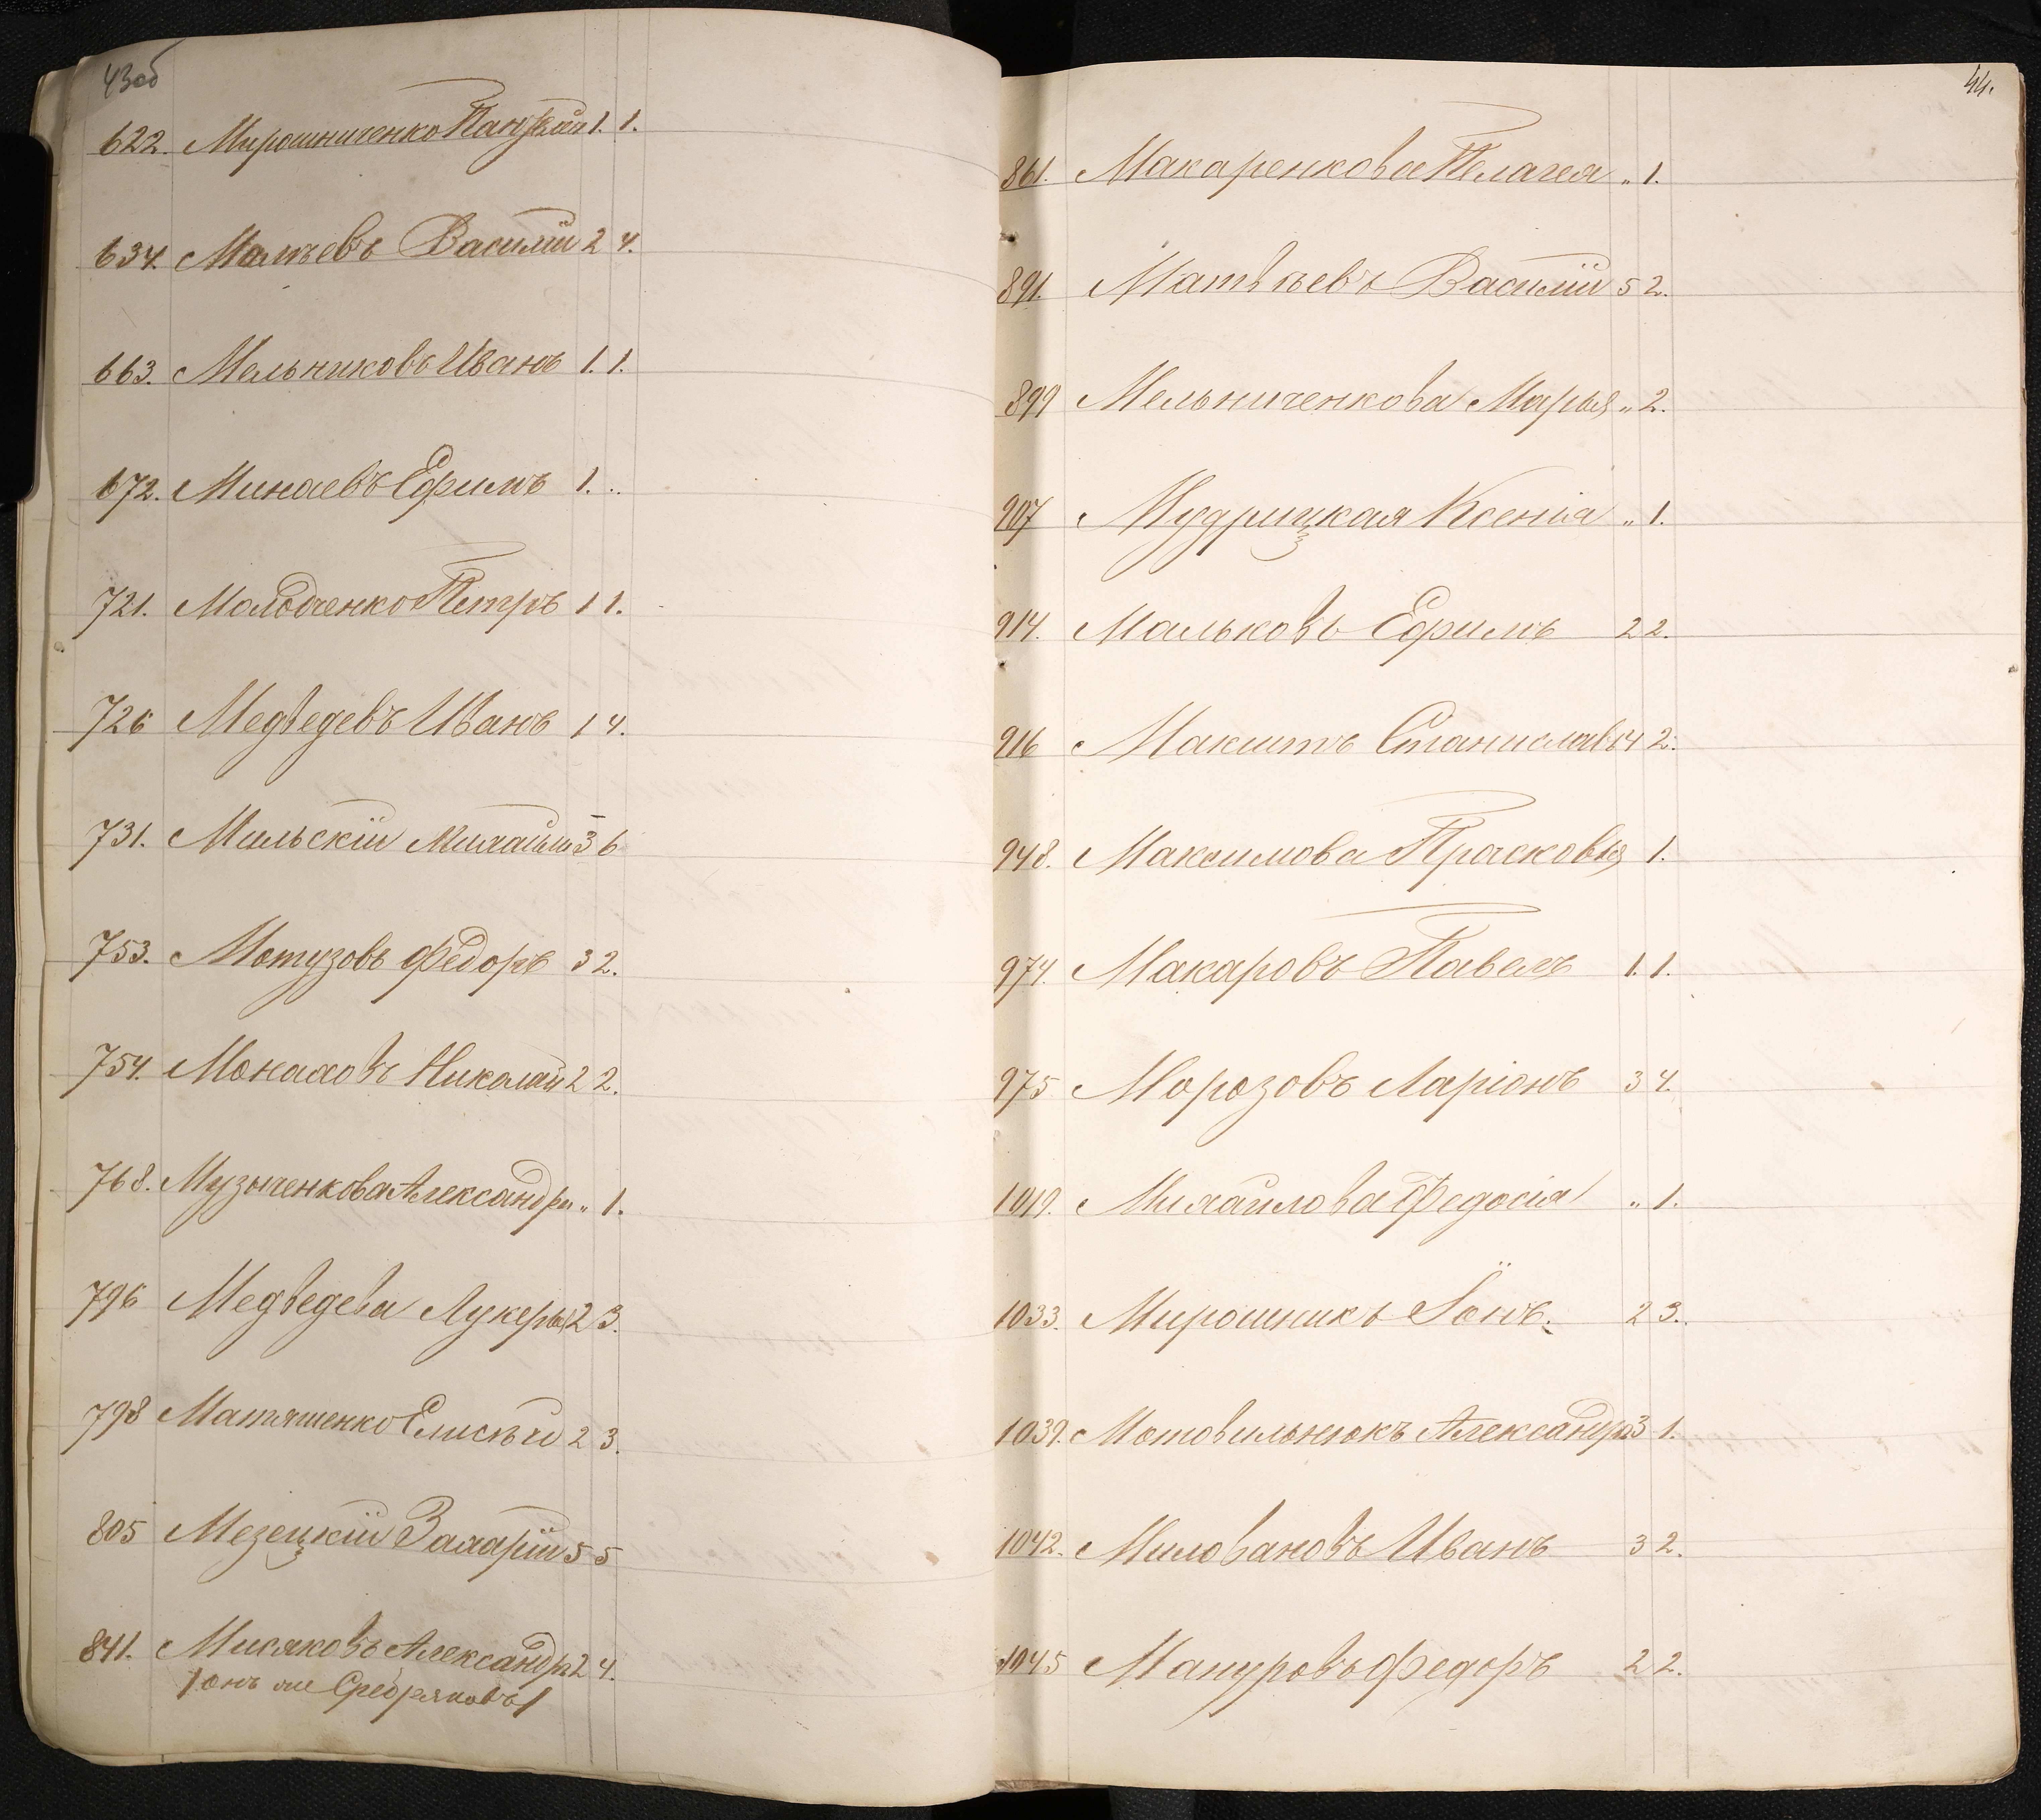 43об
622. Мирошниченко 1. 1.
634. Матвѣевъ Василій 2 4.
663. Мельниковъ Иванъ 1. 1.
672. Минаевъ Ефимъ 1. „
721. Молодченко Петръ 1 1.
726 Медведевъ Иванъ 1 4.
731. Мильскій Михаилъ 3 6
753. Мотузовъ Федоръ 3 2.
754. Монаховъ Николай 2 2.
768. Музыченкова Александра „ 1.
796 Медведева Лукерья 2 3.
798 Матяшенко Елисѣй 2 3.
805 Мезецкій Захарій 5 5
841. Мисяковъ Александръ 2 4.
/онъ же Сребряковъ/
44.
861. Макаренкова Пелагея „ 1.
891. Матвѣевъ Василій 5 2.
899 Мельниченкова Марья „ 2.
907 Мудрицкая Ксенія „ 1.
914. Мальковъ Ефимъ 2 2.
916 Станиславъ 4 2.
948. Максимова Прасковья 1.
974. Макаровъ Павелъ 1. 1.
975 Морозовъ Ларіонъ 3 4.
1019. Михайлова Федосія „ 1.
1033. Мирошникъ Іонъ. 2 3.
1039. Мотовильнюкъ Александръ 3 1.
1042. Миловановъ Иванъ 3 2.
1045 Мануровъ Федоръ 2 2.